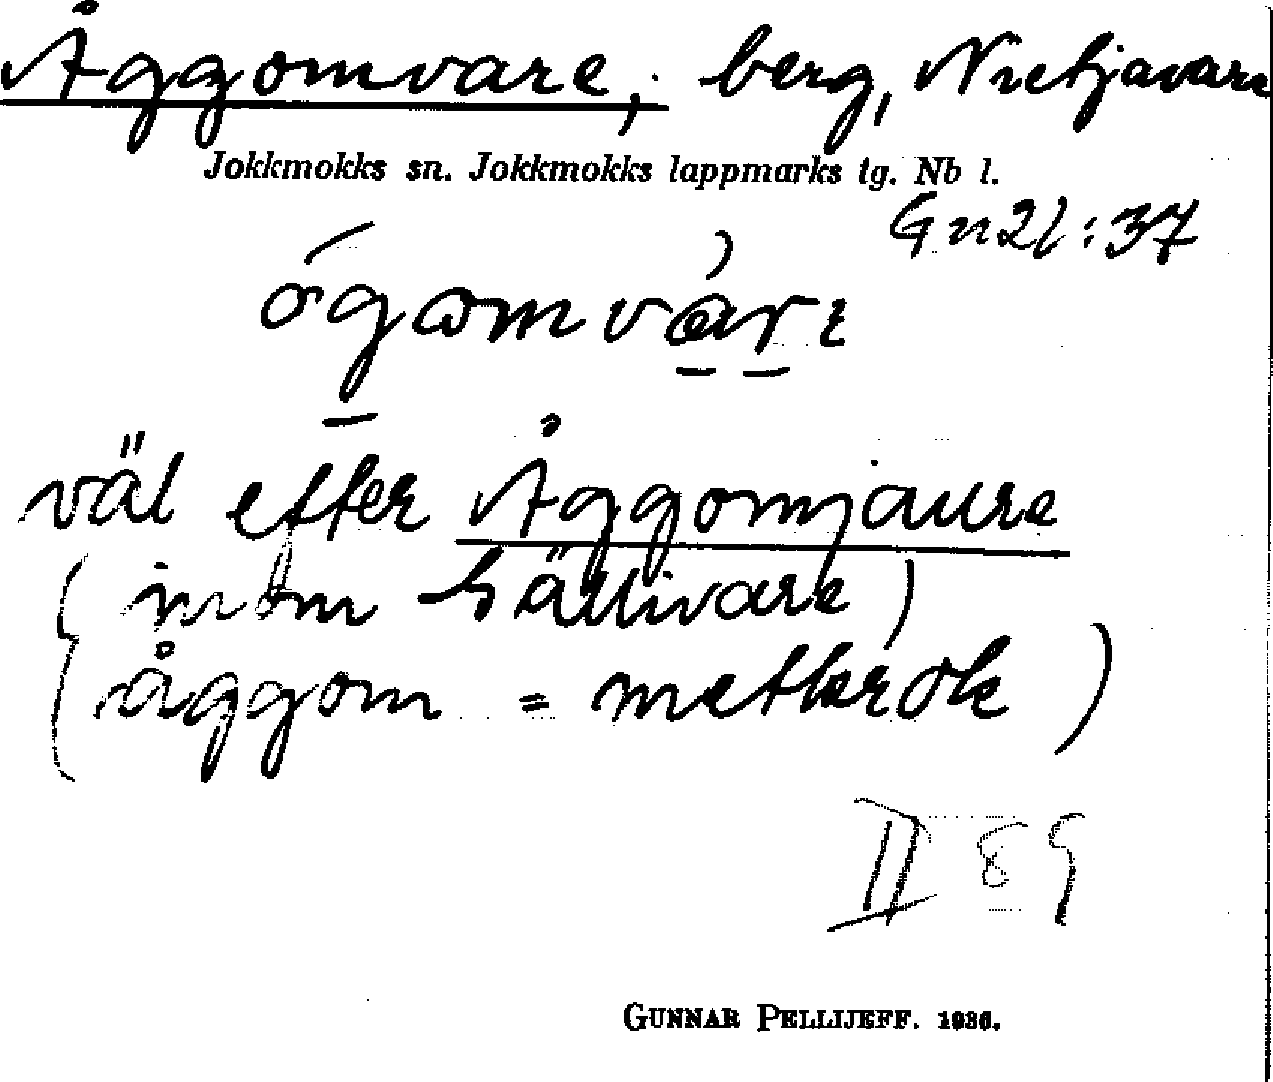 Åggomvare, berg, Nietjavare
Jokkmokks sn. Jokkmokks lappmarks tg. Nb l.
Gn21:37
ógomvárɛ
väl efter Åggomjaure
(inom Gällivare)
(åggom = metkrok)
II 89
GUNNAR PELLIJEFF. 1936.